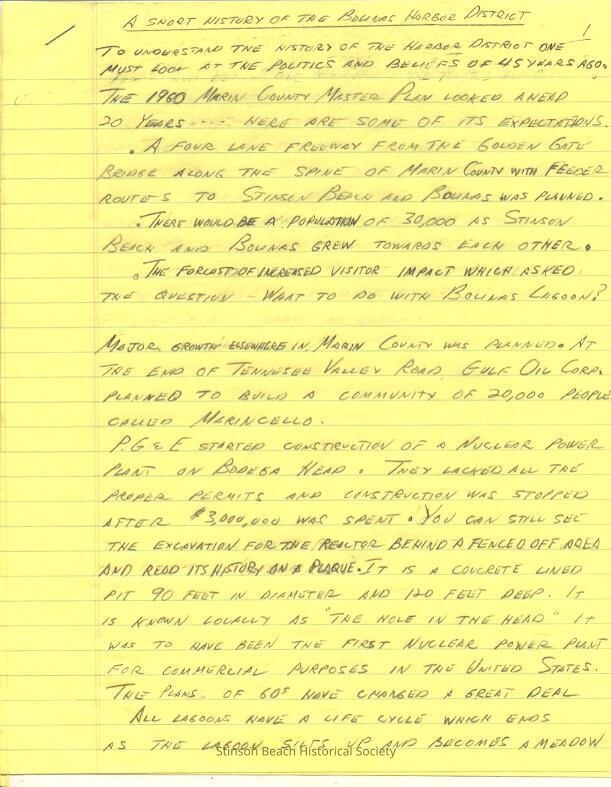 A SHORT HISTORY OF THE BOLINAS HARBOR DISTRICT
1
TO UNDERSTAND THE HISTORY OF THE HARBOR DISTRICT ONE
MUST LOOK AT THE POLITICS AND BELIEFS OF 45 YEARS AGO.
THE 1960 MARIN COUNTY MASTER PLAN LOOKED AHEAD
20 YEARS .... HERE ARE SOME OF ITS EXPECTATIONS.
. A FOUR LANE FREEWAY FROM THE GOLDEN GATE
BRIDGE ALONG THE SPINE OF MARIN COUNTY WITH FEEDER
ROUTES TO STINSON BEACH AND BOLINAS WAS PLANNED.
. THERE WOULD BE A POPULATION OF 30,000 AS STINSON
BEACH AND BOLINAS GREW TOWARDS EACH OTHER.
. THE FORCAST OF INCREASED VISITOR IMPACT WHICH ASKED
THE QUESTION - WHAT TO DO WITH BOLINAS LAGOON?
MAJOR GROWTH ELSEWHERE IN MARIN COUNTY WAS PLANNED. AT
THE END OF TENNESEE VALLEY ROAD, GULF OIL CORP.
PLANNED TO BUILD A COMMUNITY OF 20,000 PEOPLE
CALLED MARINCELLO.
P.G & E STARTED CONSTRUCTION OF A NUCLEAR POWER
PLANT ON BODEGA HEAD. THEY LACKED ALL THE
PROPER PERMITS AND CONSTRUCTION WAS STOPPED
AFTER $3,000,000 WAS SPENT. YOU CAN STILL SEE
THE EXCAVATION FOR THE REACTOR BEHIND A FENCED OFF AREA
AND READ ITS HISTORY ON A PLAQUE. IT IS A COUCRETE LINED
PIT 90 FEET IN DIAMETER AND 120 FEET DEEP. IT
IS KNOWN LOCALLY AS "THE HOLE IN THE HEAD" IT
WAS TO HAVE BEEN THE FIRST NUCLEAR POWER PLANT
FOR COMMERCIAL PURPOSES IN THE UNITED STATES.
THE PLANS OF 60S HAVE CHANGED A GREAT DEAL
ALL LAGOONS HAVE A LIFE CYCLE WHICH ENDS
AS THE LAGOON SILTS UP AND BECOMES A MEADOW
Stinson Beach Historical Society